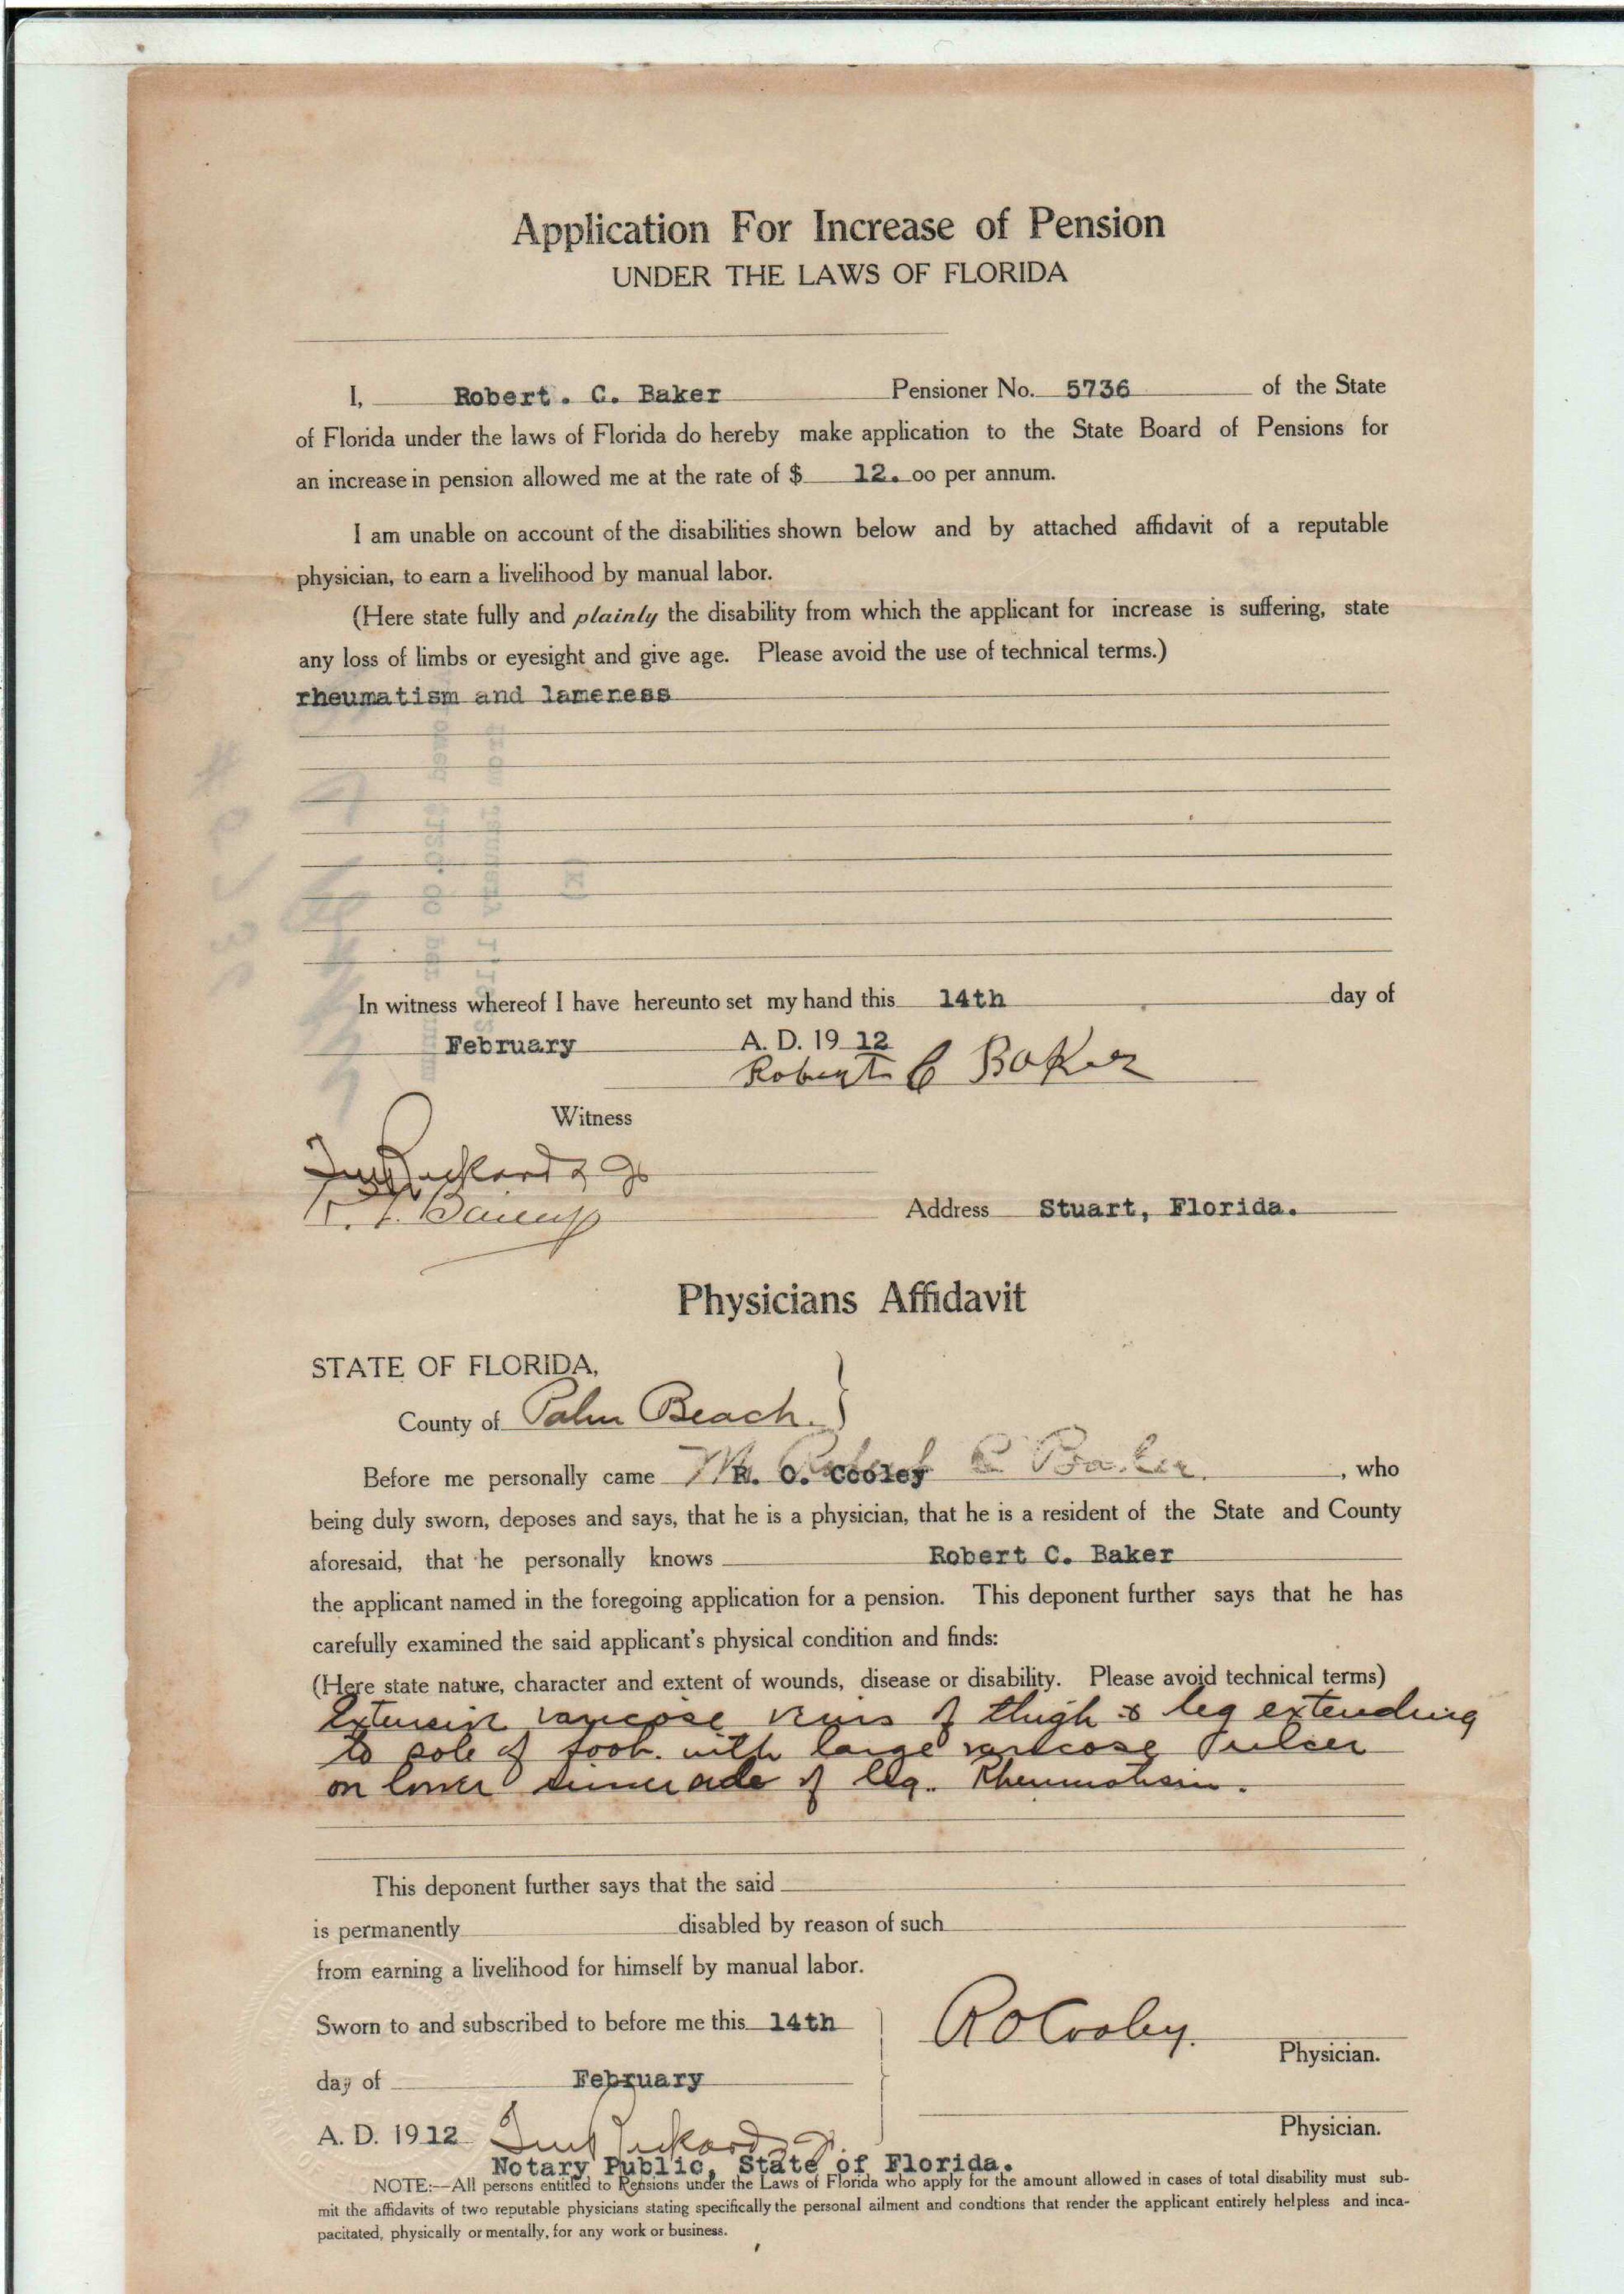 Application For Increase of Pension
UNDER THE LAWS OF FLORIDA
I, Robert. C. Baker Pensioner No. 5736 of the State
of Florida under the laws of Florida do hereby make application to the State Board of Pensions for
an increase in pension allowed me at the rate of $ 12. oo per annum.
I am unable on account of the disabilities shown below and by attached affidavit of a reputable
physician, to earn a livelihood by manual labor.
(Here state fully and plainly the disability from which the applicant for increase is suffering, state
any loss of limbs or eyesight and give age. Please avoid the use of technical terms.)
rheumatism and lameness
In witness whereof I have hereunto set my hand this 14th day of
February A. D. 19 12
Robert C Baker
Witness
Address Stuart, Florida.
Physicians Affidavit
STATE OF FLORIDA,
County of Palm Beach.
Before me personally came Mr Robert C Baker. R. O. Cooley , who
being duly sworn, deposes and says, that he is a physician, that he is a resident of the State and County
aforesaid, that he personally knows Robert C. Baker
the applicant named in the foregoing application for a pension. This deponent further says that he has
carefully examined the said applicant's physical condition and finds:
(Here state nature, character and extent of wounds, disease or disability. Please avoid technical terms)
Extensive varicose veins of thigh & leg extending
to sole of foot. with large varicose ulcer
on lower inner side of leg. Rheumatism.
This deponent further says that the said
is permanently disabled by reason of such
from earning a livelihood for himself by manual labor.
Sworn to and subscribed to before me this 14th
R O Cooley.
Physician.
day of February
Physician.
A. D. 19 12
Notary Public, State of Florida.
NOTE:—All persons entitled to Pensions under the Laws of Florida who apply for the amount allowed in cases of total disability must sub-
mit the affidavits of two reputable physicians stating specifically the personal ailment and condtions that render the applicant entirely helpless and inca-
pacitated, physically or mentally, for any work or business.